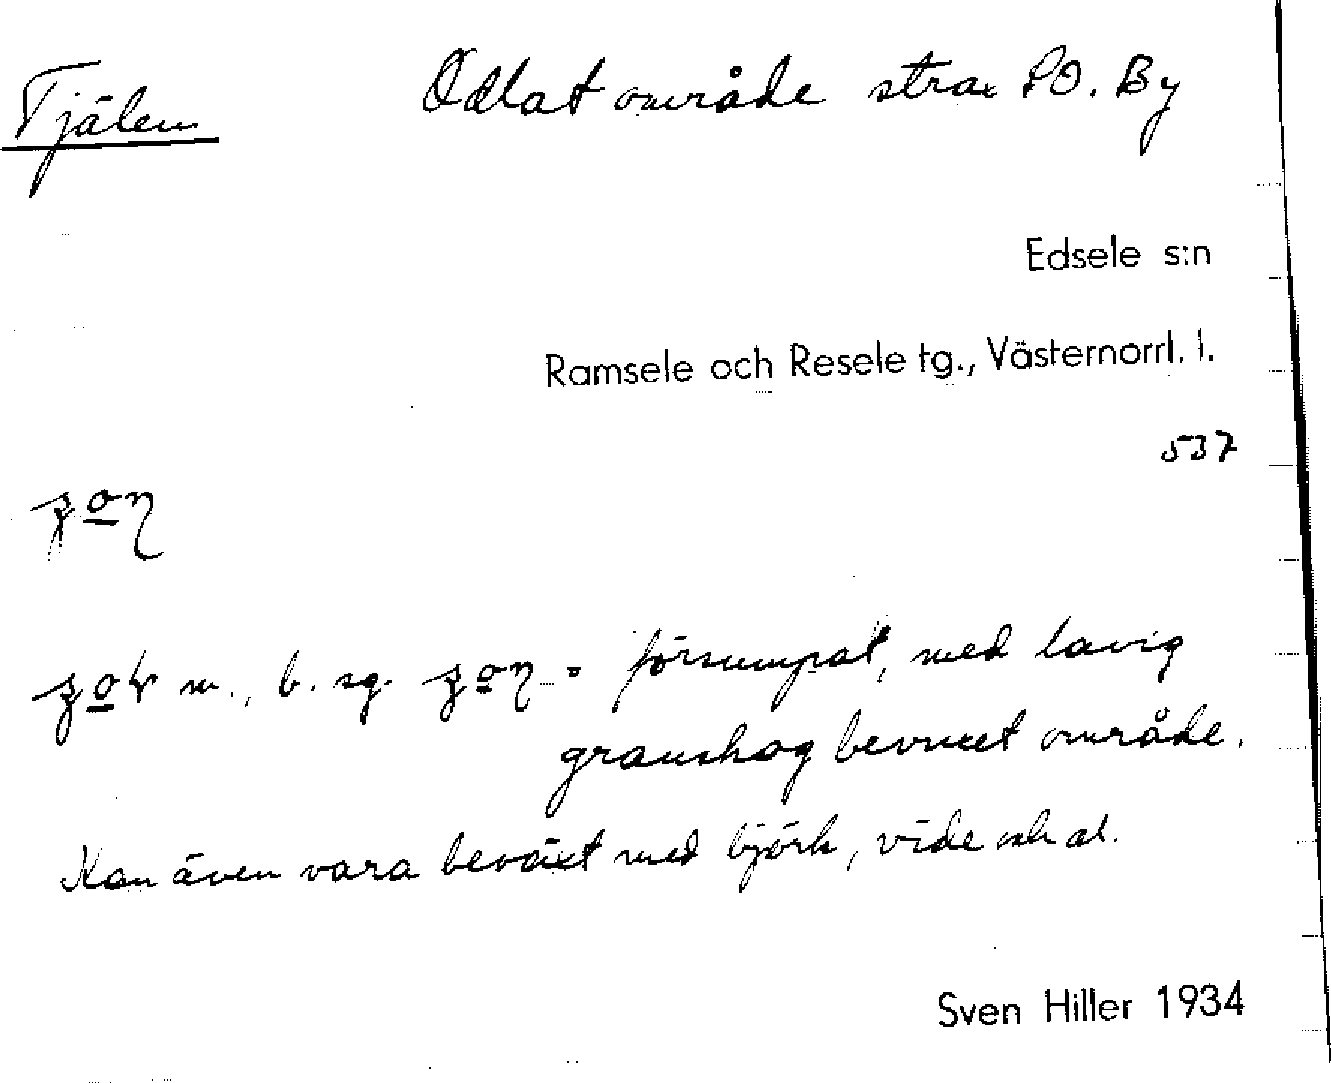 Tjälen Odlat område strax SO. By
Edsele s:n
Ramsele och Resele tg., Västernorrl. l.
537
m., b. sg. = försumpat, med lavig
granskog bevuxet område.
Kan även vara beväxt med björk, vide och al.
Sven Hiller 1934